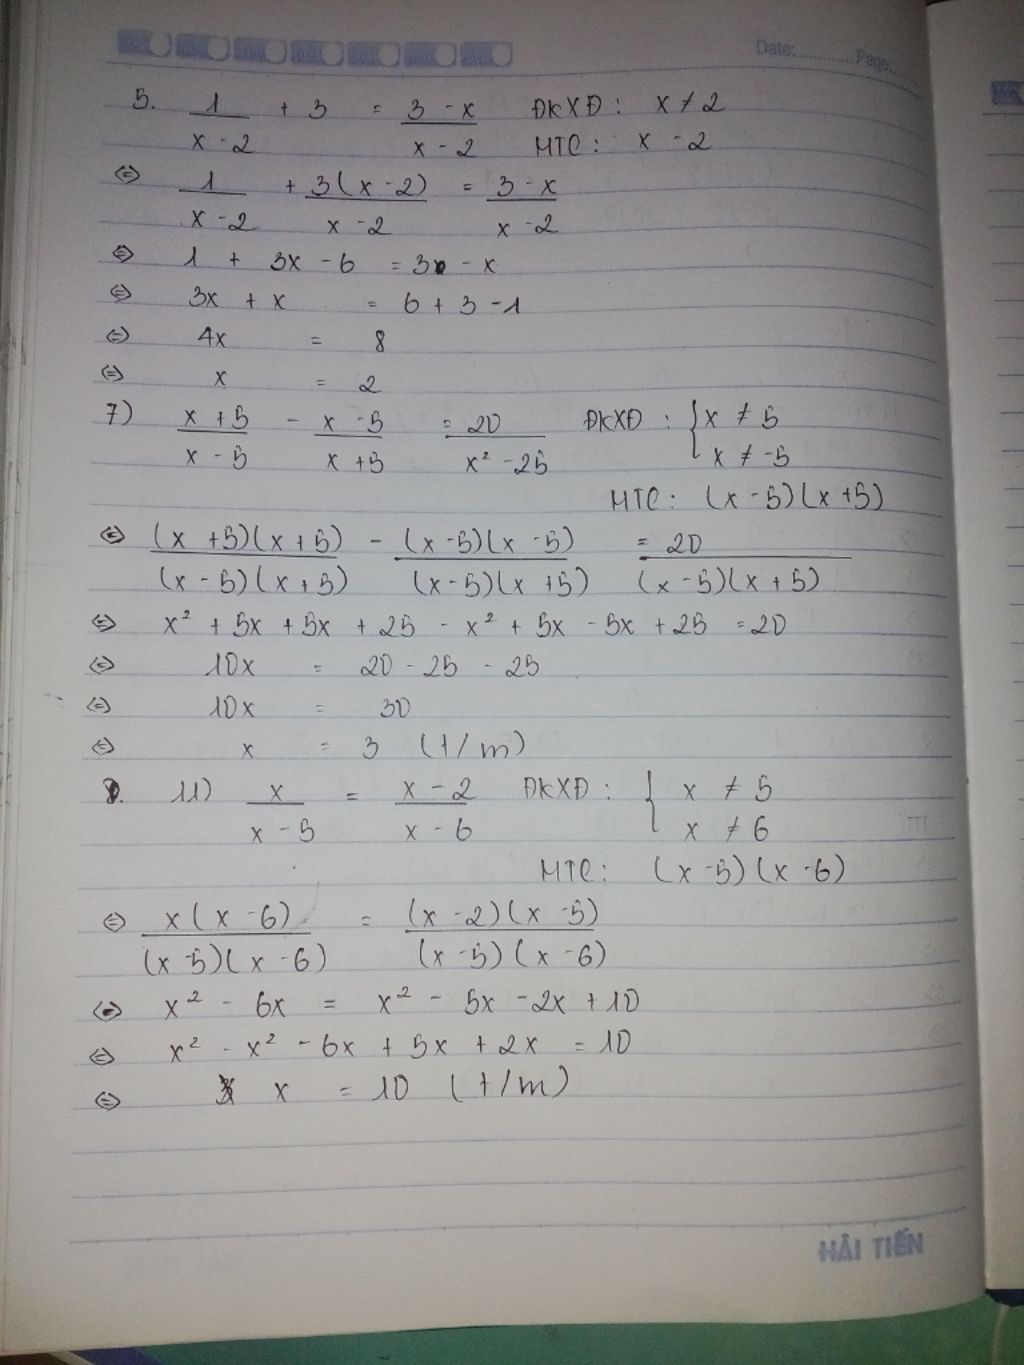 Date:............Page:
5. 1/(x - 2) + 3 = (3 - x)/(x - 2) ĐKXĐ: x ≠ 2
MTC: x - 2
⇔ 1/(x - 2) + 3(x - 2)/(x - 2) = (3 - x)/(x - 2)
⇔ 1 + 3x - 6 = 3 - x
⇔ 3x + x = 6 + 3 - 1
⇔ 4x = 8
⇔ x = 2
7) (x + 5)/(x - 5) - (x - 5)/(x + 5) = 20/(x² - 25) ĐKXĐ: { x ≠ 5
x ≠ -5
MTC: (x - 5)(x + 5)
⇔ (x + 5)(x + 5)/(x - 5)(x + 5) - (x - 5)(x - 5)/(x - 5)(x + 5) = 20/(x - 5)(x + 5)
⇔ x² + 5x + 5x + 25 - x² + 5x - 5x + 25 = 20
⇔ 10x = 20 - 25 - 25
⇔ 10x = 30
⇔ x = 3 (t/m)
11) x/(x - 5) = (x - 2)/(x - 6) ĐKXĐ: { x ≠ 5
x ≠ 6
MTC: (x - 5)(x - 6)
⇔ x(x - 6)/(x - 5)(x - 6) = (x - 2)(x - 5)/(x - 5)(x - 6)
⇔ x² - 6x = x² - 5x - 2x + 10
⇔ x² - x² - 6x + 5x + 2x = 10
⇔ x = 10 (t/m)
HẢI TIẾN